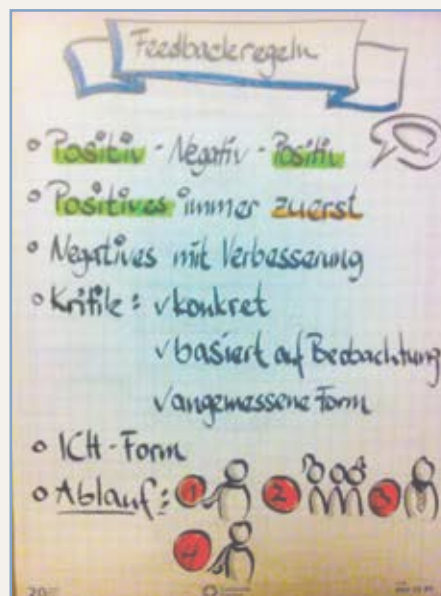 Feedbackregeln
• Positiv - Negativ - Positiv
• Positives immer zuerst
• Negatives mit Verbesserung
• Kritik: ✓konkret
✓basiert auf Beobachtung
✓angemessene Form
• ICH-Form
• Ablauf: 1 2 3
4
20